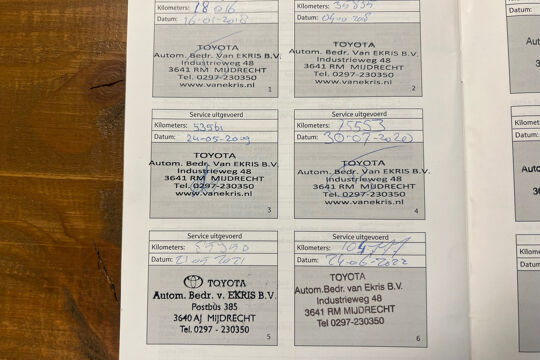 Kilometers: 18016
Datum: 16-01-2018
TOYOTA
Autom. Bedr. Van EKRIS B.V.
Industrieweg 48
3641 RM MIJDRECHT
Tel. 0297-230350
www.vanekris.nl
1
Kilometers:
Datum:
TOYOTA
Autom. Bedr. Van EKRIS B.V.
Industrieweg 48
3641 RM MIJDRECHT
Tel. 0297-230350
www.vanekris.nl
2
Service uitgevoerd
Kilometers:
Datum: 24-05-2019
TOYOTA
Autom. Bedr. Van EKRIS B.V.
Industrieweg 48
3641 RM MIJDRECHT
Tel. 0297-230350
www.vanekris.nl
3
Service uitgevoerd
Kilometers: 75553
Datum: 30-07-2020
TOYOTA
Autom. Bedr. Van EKRIS B.V.
Industrieweg 48
3641 RM MIJDRECHT
Tel. 0297-230350
www.vanekris.nl
4
Service uitgevoerd
Kilometers:
Datum: 21 05 2021
TOYOTA
Autom. Bedr. v. EKRIS B.V.
Postbus 385
3640 AJ MIJDRECHT
Tel. 0297 - 230350
5
Service uitgevoerd
Kilometers:
Datum: 24-06-2022
TOYOTA
Autom.Bedr. van EKRIS B.V.
Industrieweg 48
3641 RM MIJDRECHT
Tel. 0297-230350
6